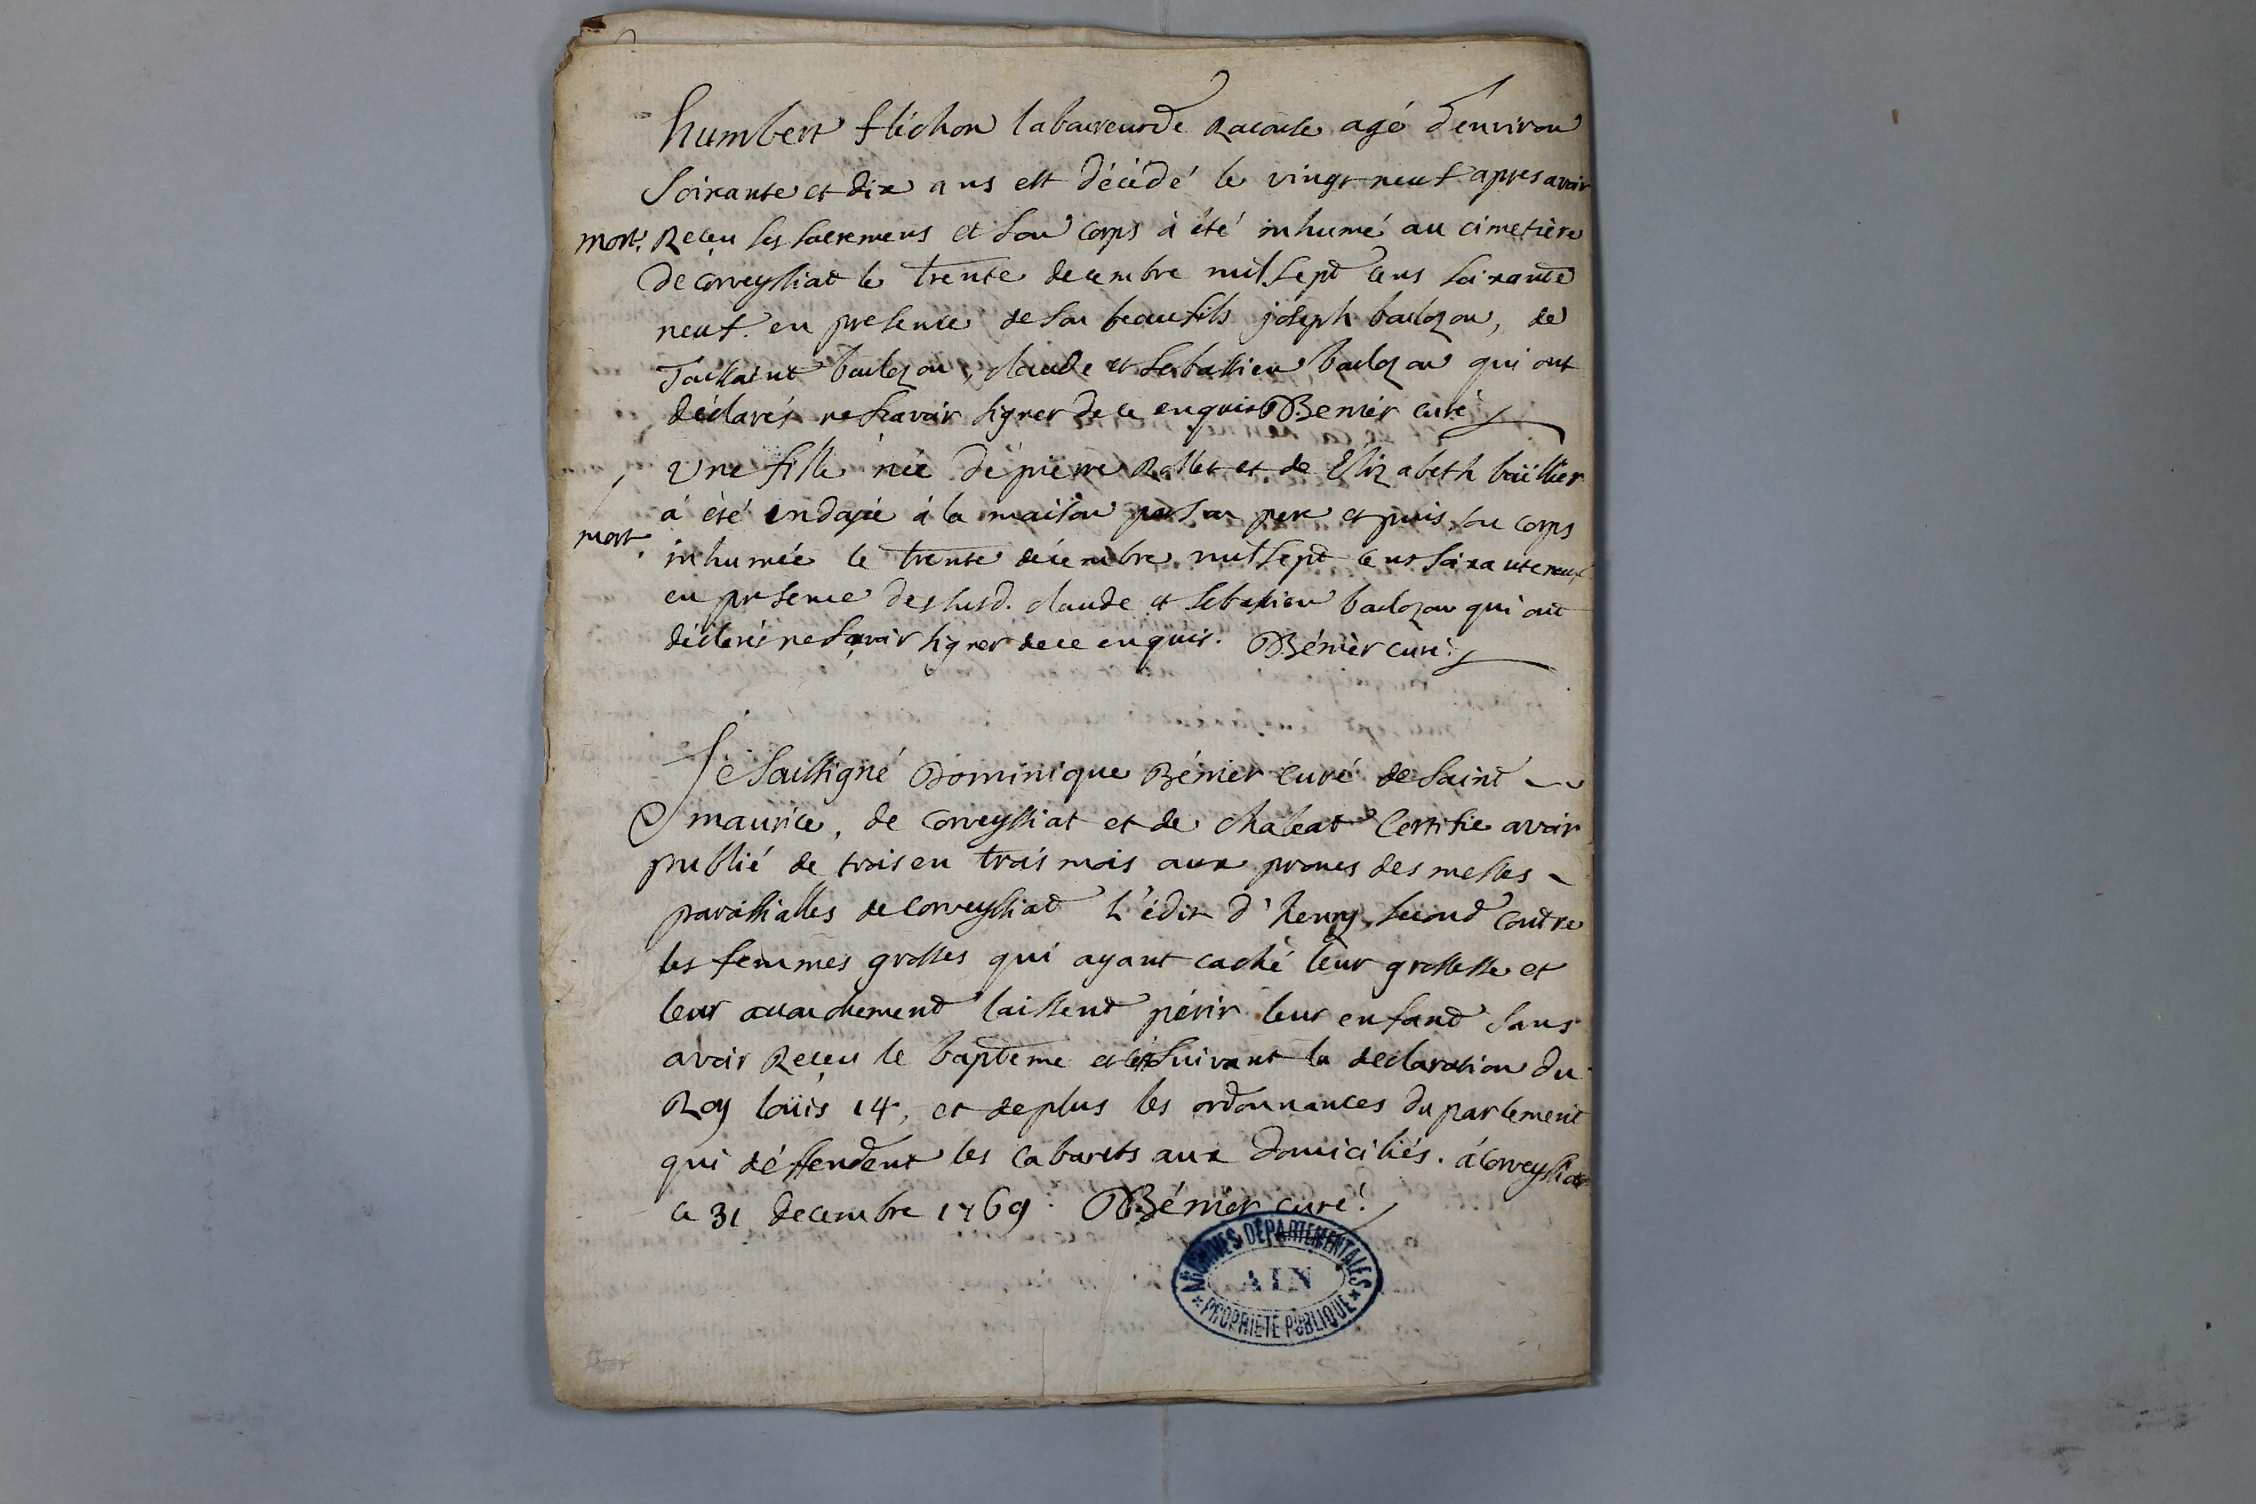 humbert flichon laboureur de Racouse agé d'environ
Soixante et dix ans est décédé le vingt neuf apres avoir
mort. Reçeu ses sacremens et son corps à été inhumé au cimetière
de corveyssiat le trente decembre mil sept cens soixante
neuf. en presence de son beaufils joseph baulozon, de
Toussaint baulozon, claude et sebastien baulozon qui ont
déclarés ne sçavoir signer de ce enquis DBenier curé
mort. Une fille née de pierre Rollet et de Elizabeth
à été ondoyée à la maison par son pere et puis son corps
inhumée le trente décembre mil sept cens soixante neuf
en presence des susd. claude et sebastien baulozon qui ont
déclarés ne sçavoir signer de ce enquis. DBénier curé.
Je Soussigné Dominique Bénier curé de Saint
maurice, de corveyssiat et de chaleat Certifie avoir
publié de trois en trois mois aux prones des messes
paroissialles de Corveyssiat L'édit d'henry second contre
les femmes grosses qui ayant caché leur grossesse et
leur accouchement laissent périr leur enfant sans
avoir Reçeu le baptême suivant la declaration du
Roy loüis 14, et de plus les ordonnances du parlement
qui déffendent les cabarets aux domiciliés. à Corveyssiat
ce 31 decembre 1769. DBénier curé.
ARCHIVES DÉPARTEMENTALES
AIN
PROPRIÉTÉ PUBLIQUE